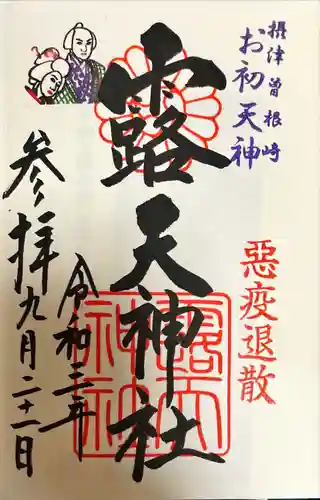 摂津曽根崎
お初天神
惡疫退散
露天神社
露天神社
令和三年
参拝九月二十一日